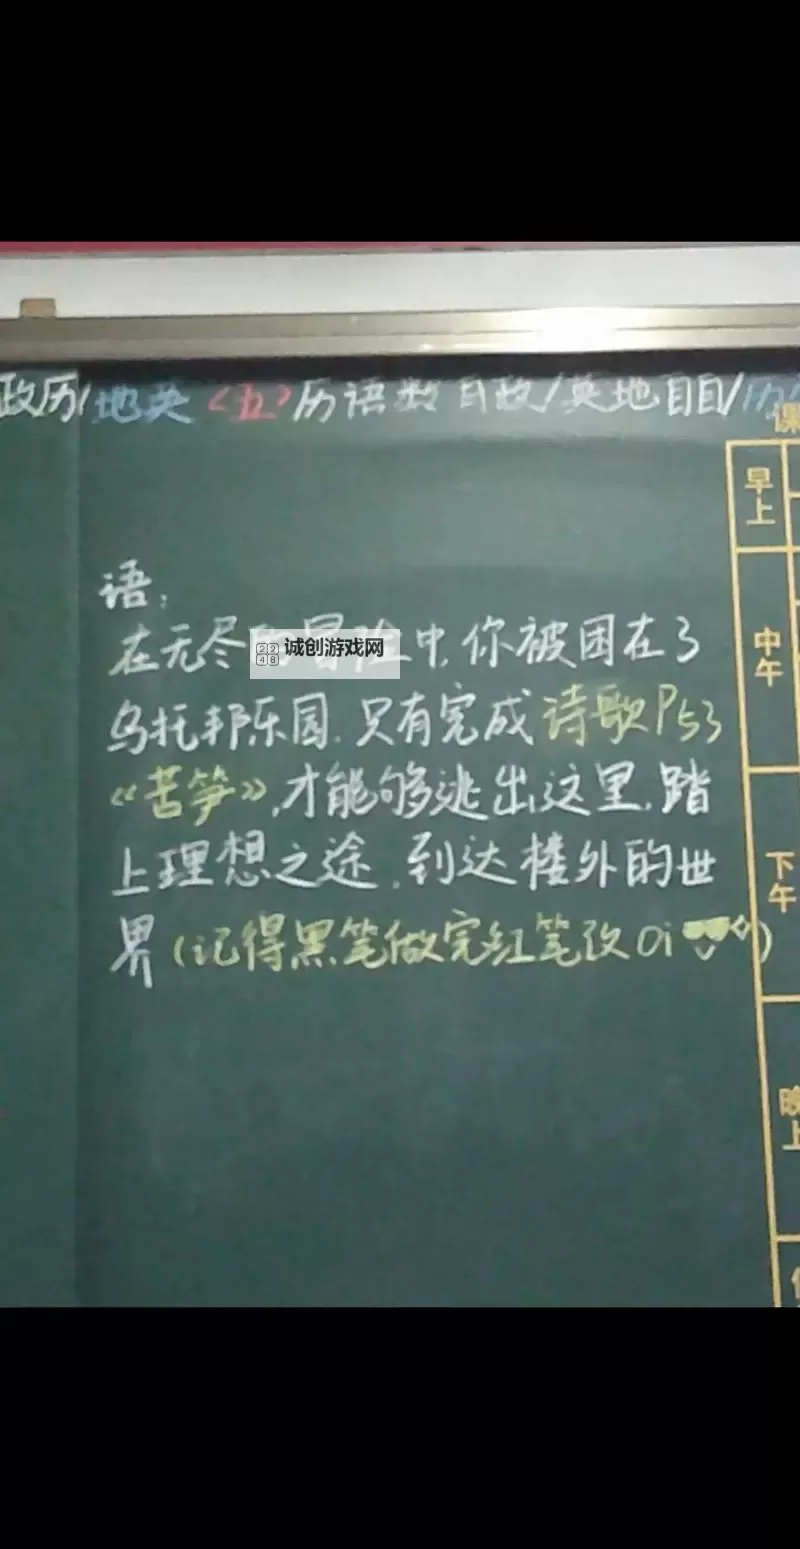 政历/地英<五>历语数自政/英地自自/历
课
早上
中午
下午
晚上
语:
在无尽 冒险中,你被困在了
诚创游戏网
乌托邦乐园.只有完成诗歌P53
《苦笋》,才能够逃出这里.踏
上理想之途,到达楼外的世
界(记得黑笔做完红笔改Oi)